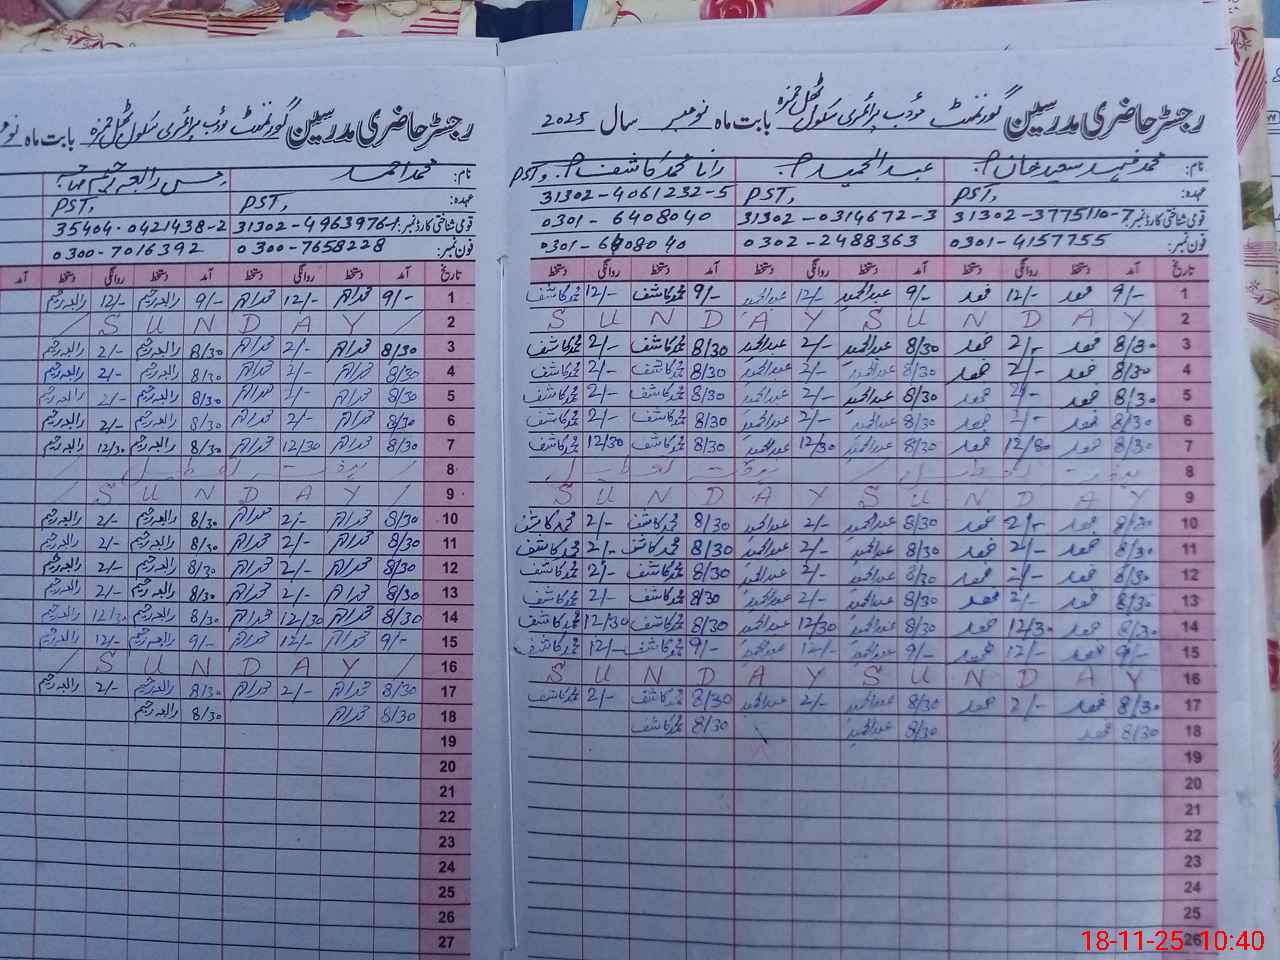 رجسٹر حاضری مدرسین گورنمنٹ مؤدب پرائمری سکول ٹھل حمزہ بابت ماہ نومبر سال 2025
نام: محمد فہد سعید خان عبد الحمید رانا محمد کاشف PST,
عہدہ: PST, PST, 31302-4061232-5
قومی شناختی کارڈ نمبر: 31302-3775110-7 31302-0314672-3 0301-6408040
فون نمبر: 0301-4157755 0302-2488363 0301-6408040
تاریخ آمد دستخط روانگی دستخط آمد دستخط روانگی دستخط آمد دستخط روانگی دستخط
1 9/- فہد 12/- فہد 9/- عبدالحمید 12/- عبدالحمید 9/- محمد کاشف 12/- محمد کاشف
2 S U N D A Y S U N D A Y
3 8/30 فہد 2/- فہد 8/30 عبدالحمید 2/- عبدالحمید 8/30 محمد کاشف 2/- محمد کاشف
4 8/30 فہد 2/- فہد 8/30 عبدالحمید 2/- عبدالحمید 8/30 محمد کاشف 2/- محمد کاشف
5 8/30 فہد 2/- فہد 8/30 عبدالحمید 2/- عبدالحمید 8/30 محمد کاشف 2/- محمد کاشف
6 8/30 فہد 2/- فہد 8/30 عبدالحمید 2/- عبدالحمید 8/30 محمد کاشف 2/- محمد کاشف
7 8/30 فہد 12/30 فہد 8/30 عبدالحمید 12/30 عبدالحمید 8/30 محمد کاشف 12/30 محمد کاشف
8
9 S U N D A Y S U N D A Y
10 8/30 فہد 2/- فہد 8/30 عبدالحمید 2/- عبدالحمید 8/30 محمد کاشف 2/- محمد کاشف
11 8/30 فہد 2/- فہد 8/30 عبدالحمید 2/- عبدالحمید 8/30 محمد کاشف 2/- محمد کاشف
12 8/30 فہد 2/- فہد 8/30 عبدالحمید 2/- عبدالحمید 8/30 محمد کاشف 2/- محمد کاشف
13 8/30 فہد 2/- فہد 8/30 عبدالحمید 2/- عبدالحمید 8/30 محمد کاشف 2/- محمد کاشف
14 8/30 فہد 12/30 فہد 8/30 عبدالحمید 12/30 عبدالحمید 8/30 محمد کاشف 12/30 محمد کاشف
15 9/- فہد 12/- فہد 9/- عبدالحمید 12/- عبدالحمید 9/- محمد کاشف 12/- محمد کاشف
16 S U N D A Y S U N D A Y
17 8/30 فہد 2/- فہد 8/30 عبدالحمید 2/- عبدالحمید 8/30 محمد کاشف 2/- محمد کاشف
18 8/30 فہد 8/30 عبدالحمید 8/30 محمد کاشف
19
20
21
22
23
24
25
26
رجسٹر حاضری مدرسین گورنمنٹ مؤدب پرائمری سکول ٹھل حمزہ بابت ماہ
نام: محمد احمد مس رابعہ رحیم
عہدہ: PST, PST,
قومی شناختی کارڈ نمبر: 31302-4963976-1 35404-0421438-2
فون نمبر: 0300-7658228 0300-7016392
تاریخ آمد دستخط روانگی دستخط آمد دستخط روانگی دستخط آمد
1 9/- 12/- 9/- رابعہ رحیم 12/- رابعہ رحیم
2 S U N D A Y
3 8/30 2/- 8/30 رابعہ رحیم 2/- رابعہ رحیم
4 8/30 2/- 8/30 رابعہ رحیم 2/- رابعہ رحیم
5 8/30 2/- 8/30 رابعہ رحیم 2/- رابعہ رحیم
6 8/30 2/- 8/30 رابعہ رحیم 2/- رابعہ رحیم
7 8/30 12/30 8/30 رابعہ رحیم 12/30 رابعہ رحیم
8
9 S U N D A Y
10 8/30 2/- 8/30 رابعہ رحیم 2/- رابعہ رحیم
11 8/30 2/- 8/30 رابعہ رحیم 2/- رابعہ رحیم
12 8/30 2/- 8/30 رابعہ رحیم 2/- رابعہ رحیم
13 8/30 2/- 8/30 رابعہ رحیم 2/- رابعہ رحیم
14 8/30 12/30 8/30 رابعہ رحیم 12/30 رابعہ رحیم
15 9/- 12/- 9/- رابعہ رحیم 12/- رابعہ رحیم
16 S U N D A Y
17 8/30 2/- 8/30 رابعہ رحیم 2/- رابعہ رحیم
18 8/30 8/30 رابعہ رحیم
19
20
21
22
23
24
25
26
27
18-11-25 10:40